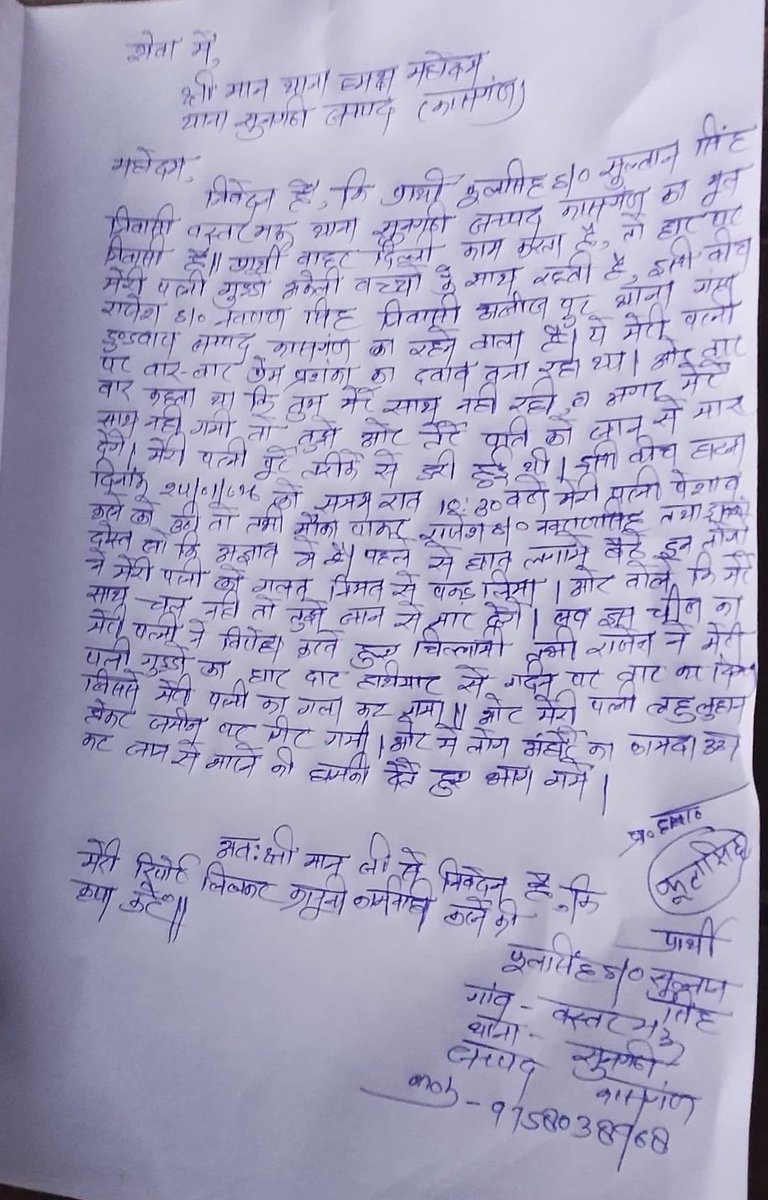 सेवा में,
श्री मान थाना ध्यक्ष महोदय
थाना सुनगढी जनपद (कासगंज)
महोदय,
निवेदन है, कि प्रार्थी फूलसिंह S/O सुल्तान सिंह
निवासी वस्तर थाना सुनगढी जनपद कासगंज का मूल
निवासी है॥ प्रार्थी बाहर दिल्ली काम करता है, तो घर पर
मेरी पत्नी गुड्डो अकेली बच्चों के साथ रहती है, इसी बीच
राजेश S/O सिंह निवासी पुर थाना गंज
डुण्डवारा जनपद कासगंज का रहने वाला है। ये मेरी पत्नी
पर बार-बार प्रेम प्रशंग का दवाव बना रहा था। और बार
बार कहता था कि तुम मेरे साथ नही रही, व अगर मेरे
साथ नही गयी तो तुझे और तेरे पति को जान से मार
देंगे। मेरी पत्नी पूरे तरीके से डरी हुई थी। इसी बीच
दिनांक को समय रात बजे मेरी पत्नी पेशाव
करने को उठी तो तभी मौका पाकर राजेश S/O तथा
दोस्त जो कि अज्ञात में है। पहले से घात लगाये बैठे इन लोगो
ने मेरी पत्नी को गलत नियत से पकड़ लिया। और बोले, कि मेरे
साथ चल नही तो तुझे जान से मार देंगे। जब इस चीज का
मेरी पत्नी ने विरोध करते हुए चिल्लायी तभी राजेश ने मेरी
पत्नी गुड्डो का धार दार हथियार से गर्दन पर वार कर दिया
जिससे मेरी पत्नी का गला कट गया॥ और मेरी पत्नी लहुलुहान
होकर जमीन पर गिर गयी। और ये लोग अंधेरे का फायदा उठा
कर जान से मारने की धमकी देते हुए भाग गये।
अतः श्री मान जी से निवेदन है, कि
मेरी रिपोर्ट लिखकर कानूनी कार्यवाही करने की
कृपा करें॥
फूलसिंह
प्रार्थी
फूलसिंह S/O सुल्तान
सिंह
गांव - वस्तर
थाना - सुनगढी
जनपद कासगंज
mob - 9758038968